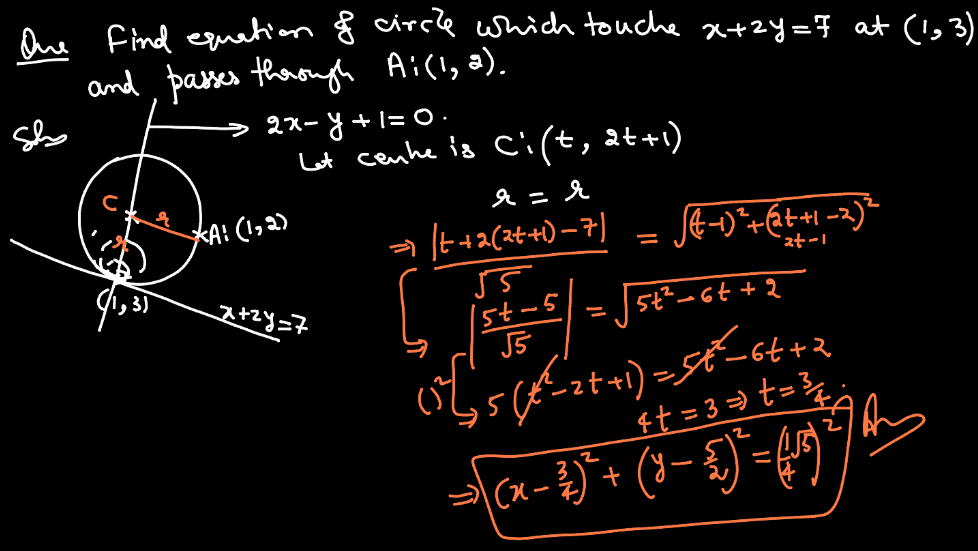 Que Find equation of circle which touche x+2y=7 at (1, 3)
and passes through A:(1, 2).
Sol
2x-y+1=0.
Let centre is C:(t, 2t+1)
r = r
C
r
A:(1,2)
r
(1,3)
x+2y=7
⇒ |t+2(2t+1)-7|/√5 = √((t-1)²+(2t+1-2)²)
2t-1
⇒ |5t-5/√5| = √(5t²-6t+2)
()² 5(t²-2t+1) = 5t²-6t+2
4t = 3 ⇒ t = 3/4.
⇒ (x-3/4)² + (y-5/2)² = (1√5/4)² Ans